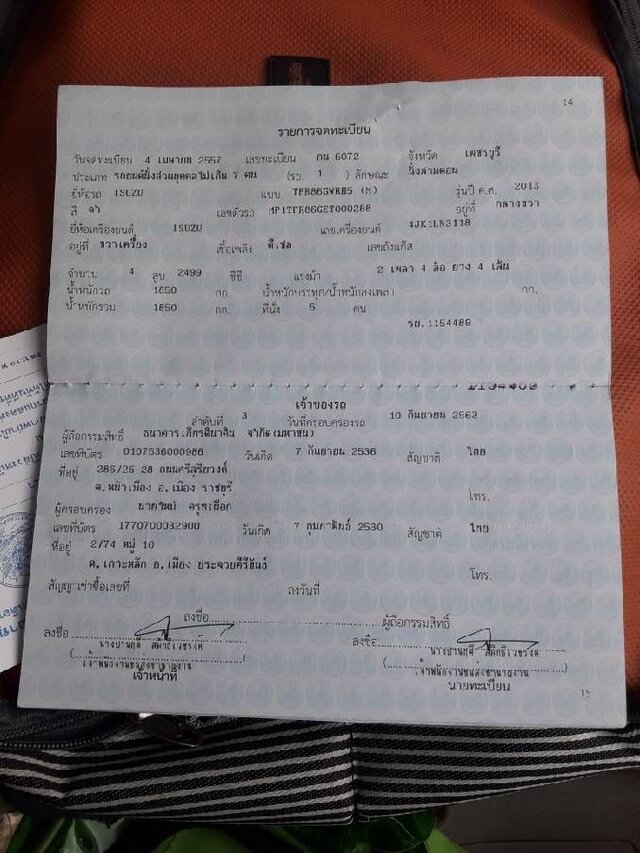 14
รายการจดทะเบียน
วันจดทะเบียน 4 เมษายน 2557 เลขทะเบียน กน 6072 จังหวัด เพชรบุรี
ประเภท รถยนต์นั่งส่วนบุคคลไม่เกิน 7 คน (รย. 1 ) ลักษณะ นั่งสามตอน
ยี่ห้อรถ ISUZU แบบ (M) รุ่นปี ค.ศ. 2013
สี เลขตัวรถ อยู่ที่ กลางขวา
ยี่ห้อเครื่องยนต์ ISUZU เลขเครื่องยนต์
อยู่ที่ ขวาเครื่อง เชื้อเพลิง ดีเซล เลขถังแก๊ส
จำนวน 4 สูบ 2499 ซีซี แรงม้า 2 เพลา 4 ล้อ ยาง 4 เส้น
น้ำหนักรถ 1850 กก. น้ำหนักบรรทุก/น้ำหนักลงเพลา กก.
น้ำหนักรวม 1850 กก. ที่นั่ง 5 คน
รย.1154489
เจ้าของรถ
ลำดับที่ 3 วันที่ครอบครองรถ 10 กันยายน 2563
ผู้ถือกรรมสิทธิ์ ธนาคาร เกียรตินาคิน จำกัด (มหาชน)
เลขที่บัตร 0107536000986 วันเกิด 7 กันยายน 2536 สัญชาติ ไทย
ที่อยู่ 286/26-28 ถนนศรีสุริยวงศ์
ต.หน้าเมือง อ.เมือง ราชบุรี โทร.
ผู้ครอบครอง
เลขที่บัตร 1770700032900 วันเกิด 7 กุมภาพันธ์ 2530 สัญชาติ ไทย
ที่อยู่ 2/74 หมู่ 10
ต.เกาะหลัก อ.เมือง ประจวบคีรีขันธ์ โทร.
สัญญาเช่าซื้อเลขที่ ลงวันที่
ลงชื่อ ผู้ถือกรรมสิทธิ์
ลงชื่อ ลงชื่อ
เจ้าหน้าที่ นายทะเบียน
15